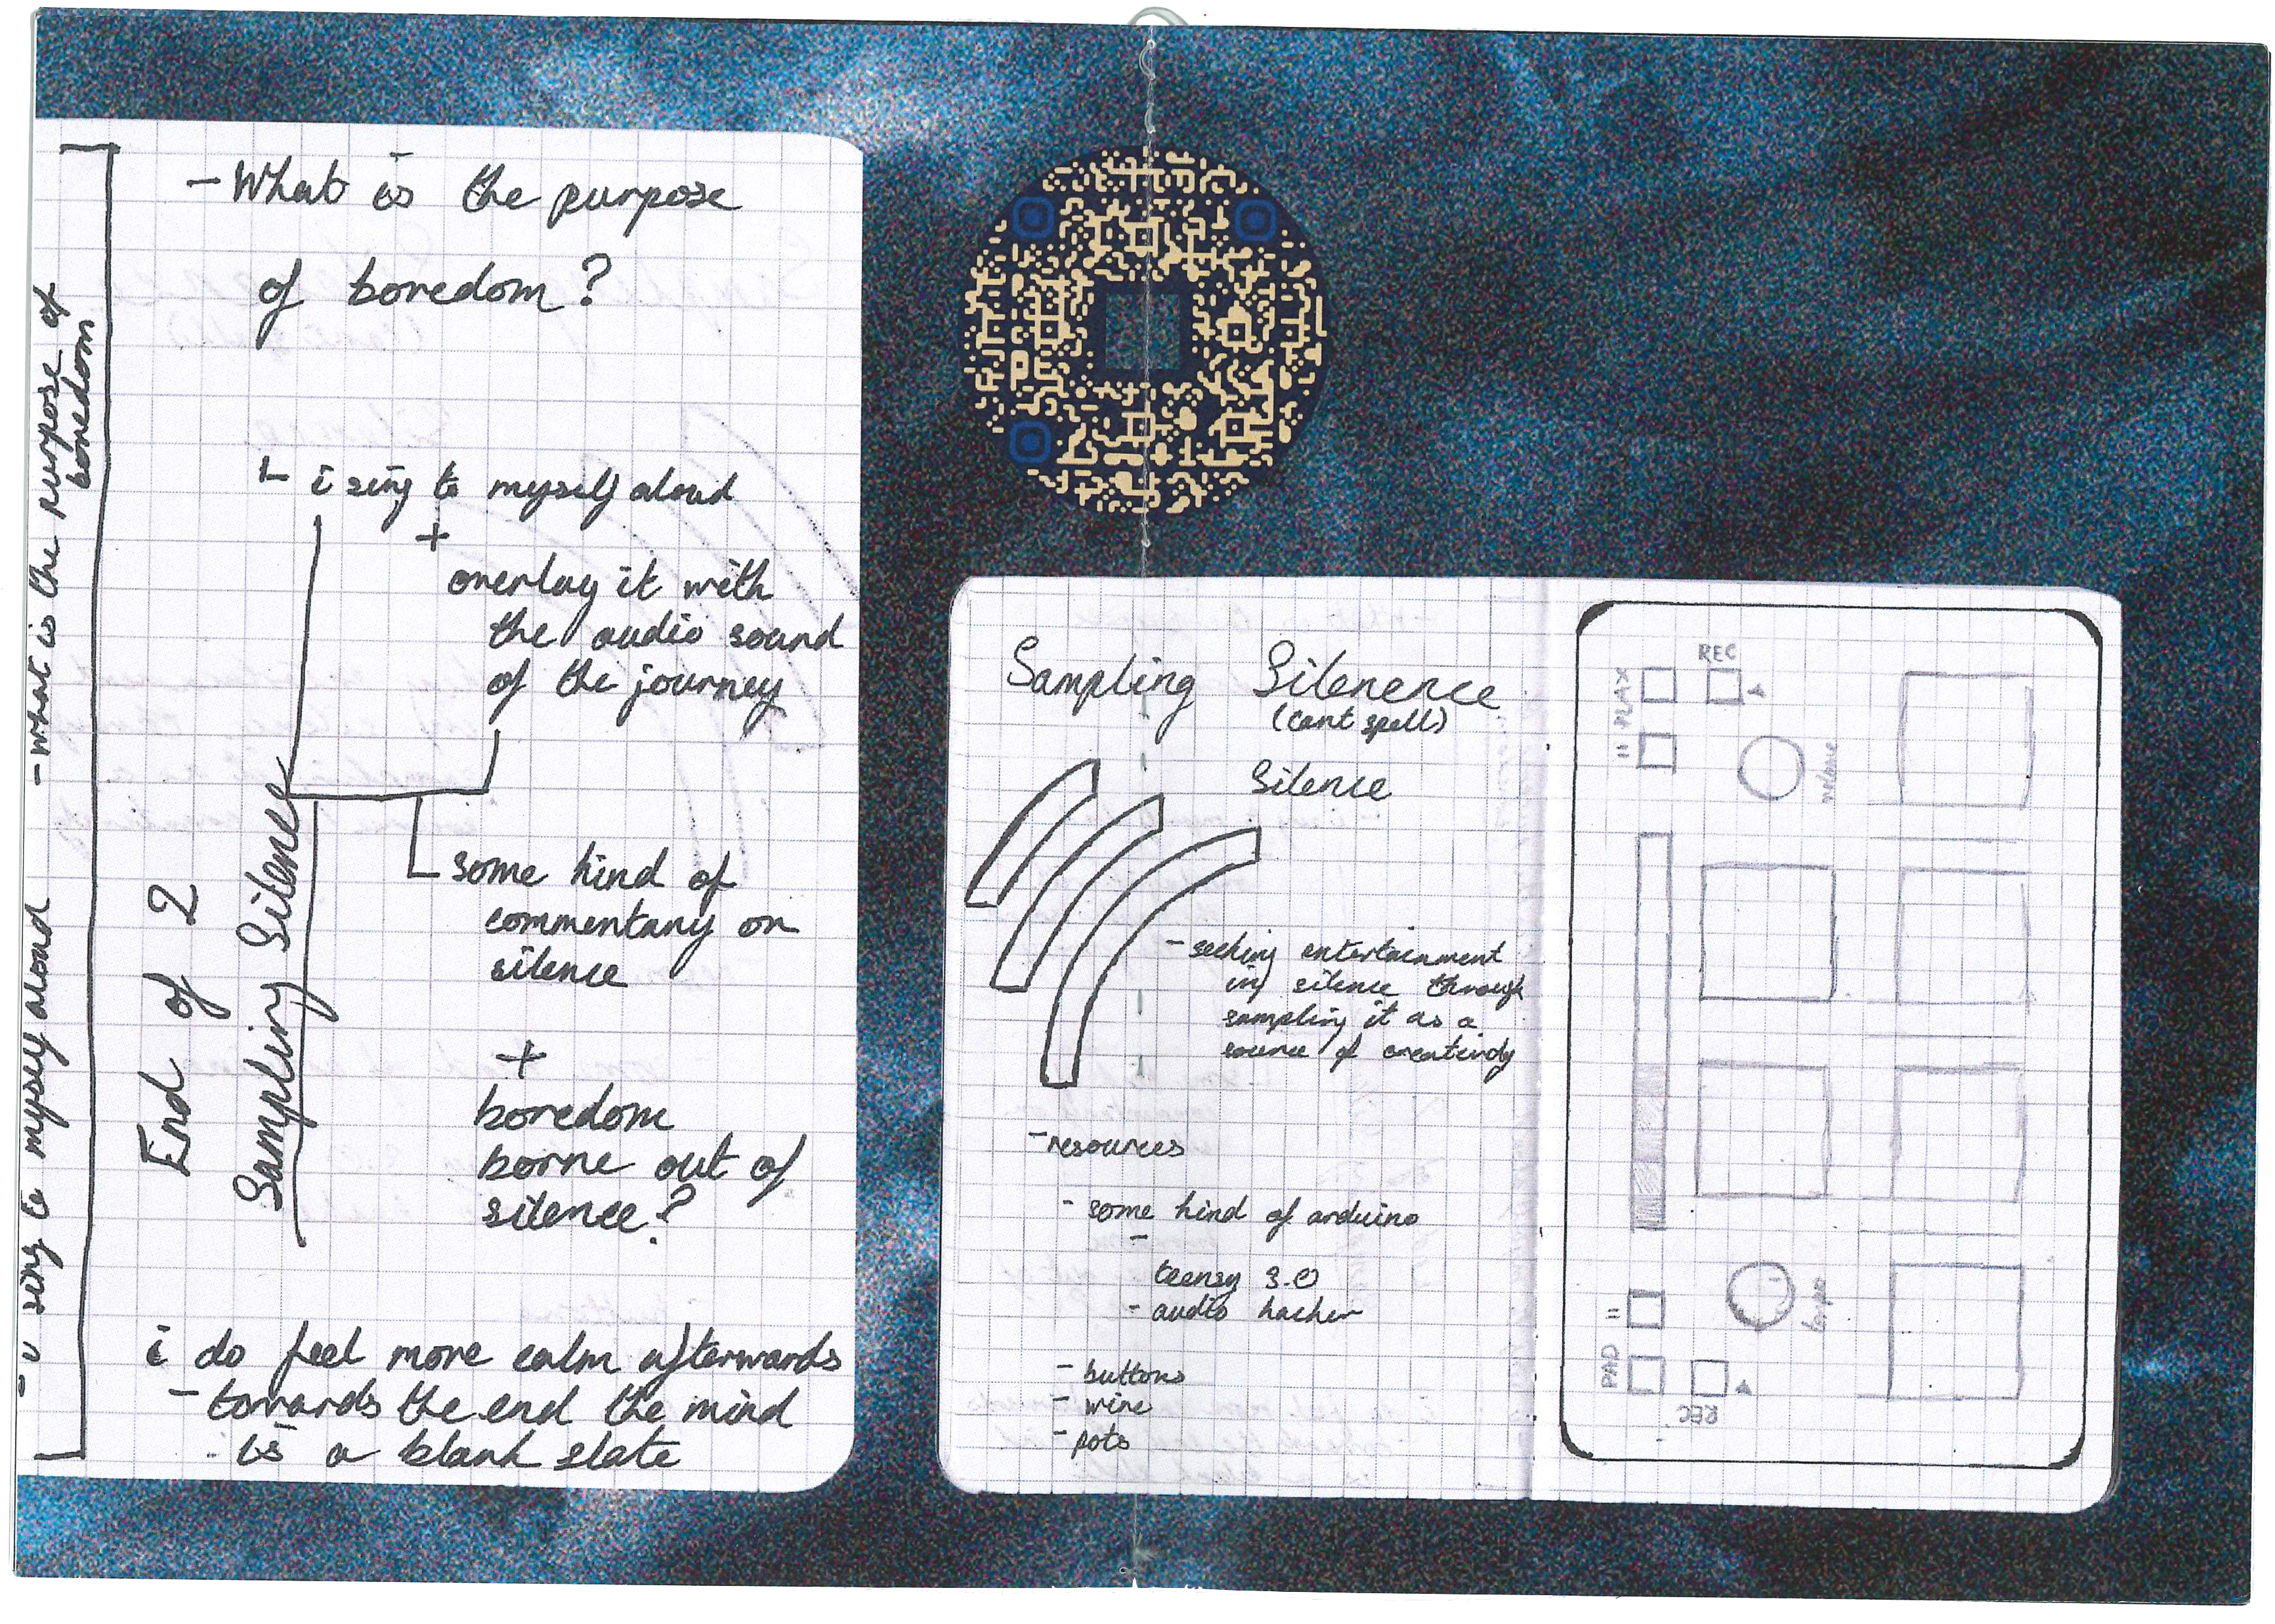 - What is the purpose of
boredom
- i sing to myself aloud
- What is the purpose
of boredom?
i sing to myself aloud
+
overlay it with
the audio sound
of the journey
End of 2
Sampling Silence
some kind of
commentary on
silence
+
boredom
borne out of
silence?
i do feel more calm afterwards
- towards the end the mind
is a blank slate
Sampling Silenence
(cant spell)
Silence
- seeking entertainment
in silence through
sampling it as a
source of creativity
- resources
- some kind of arduino
-
teensy 3.0
- audio hacker
- buttons
- wire
- pots
REC
PLAY
volume
PAD
REC